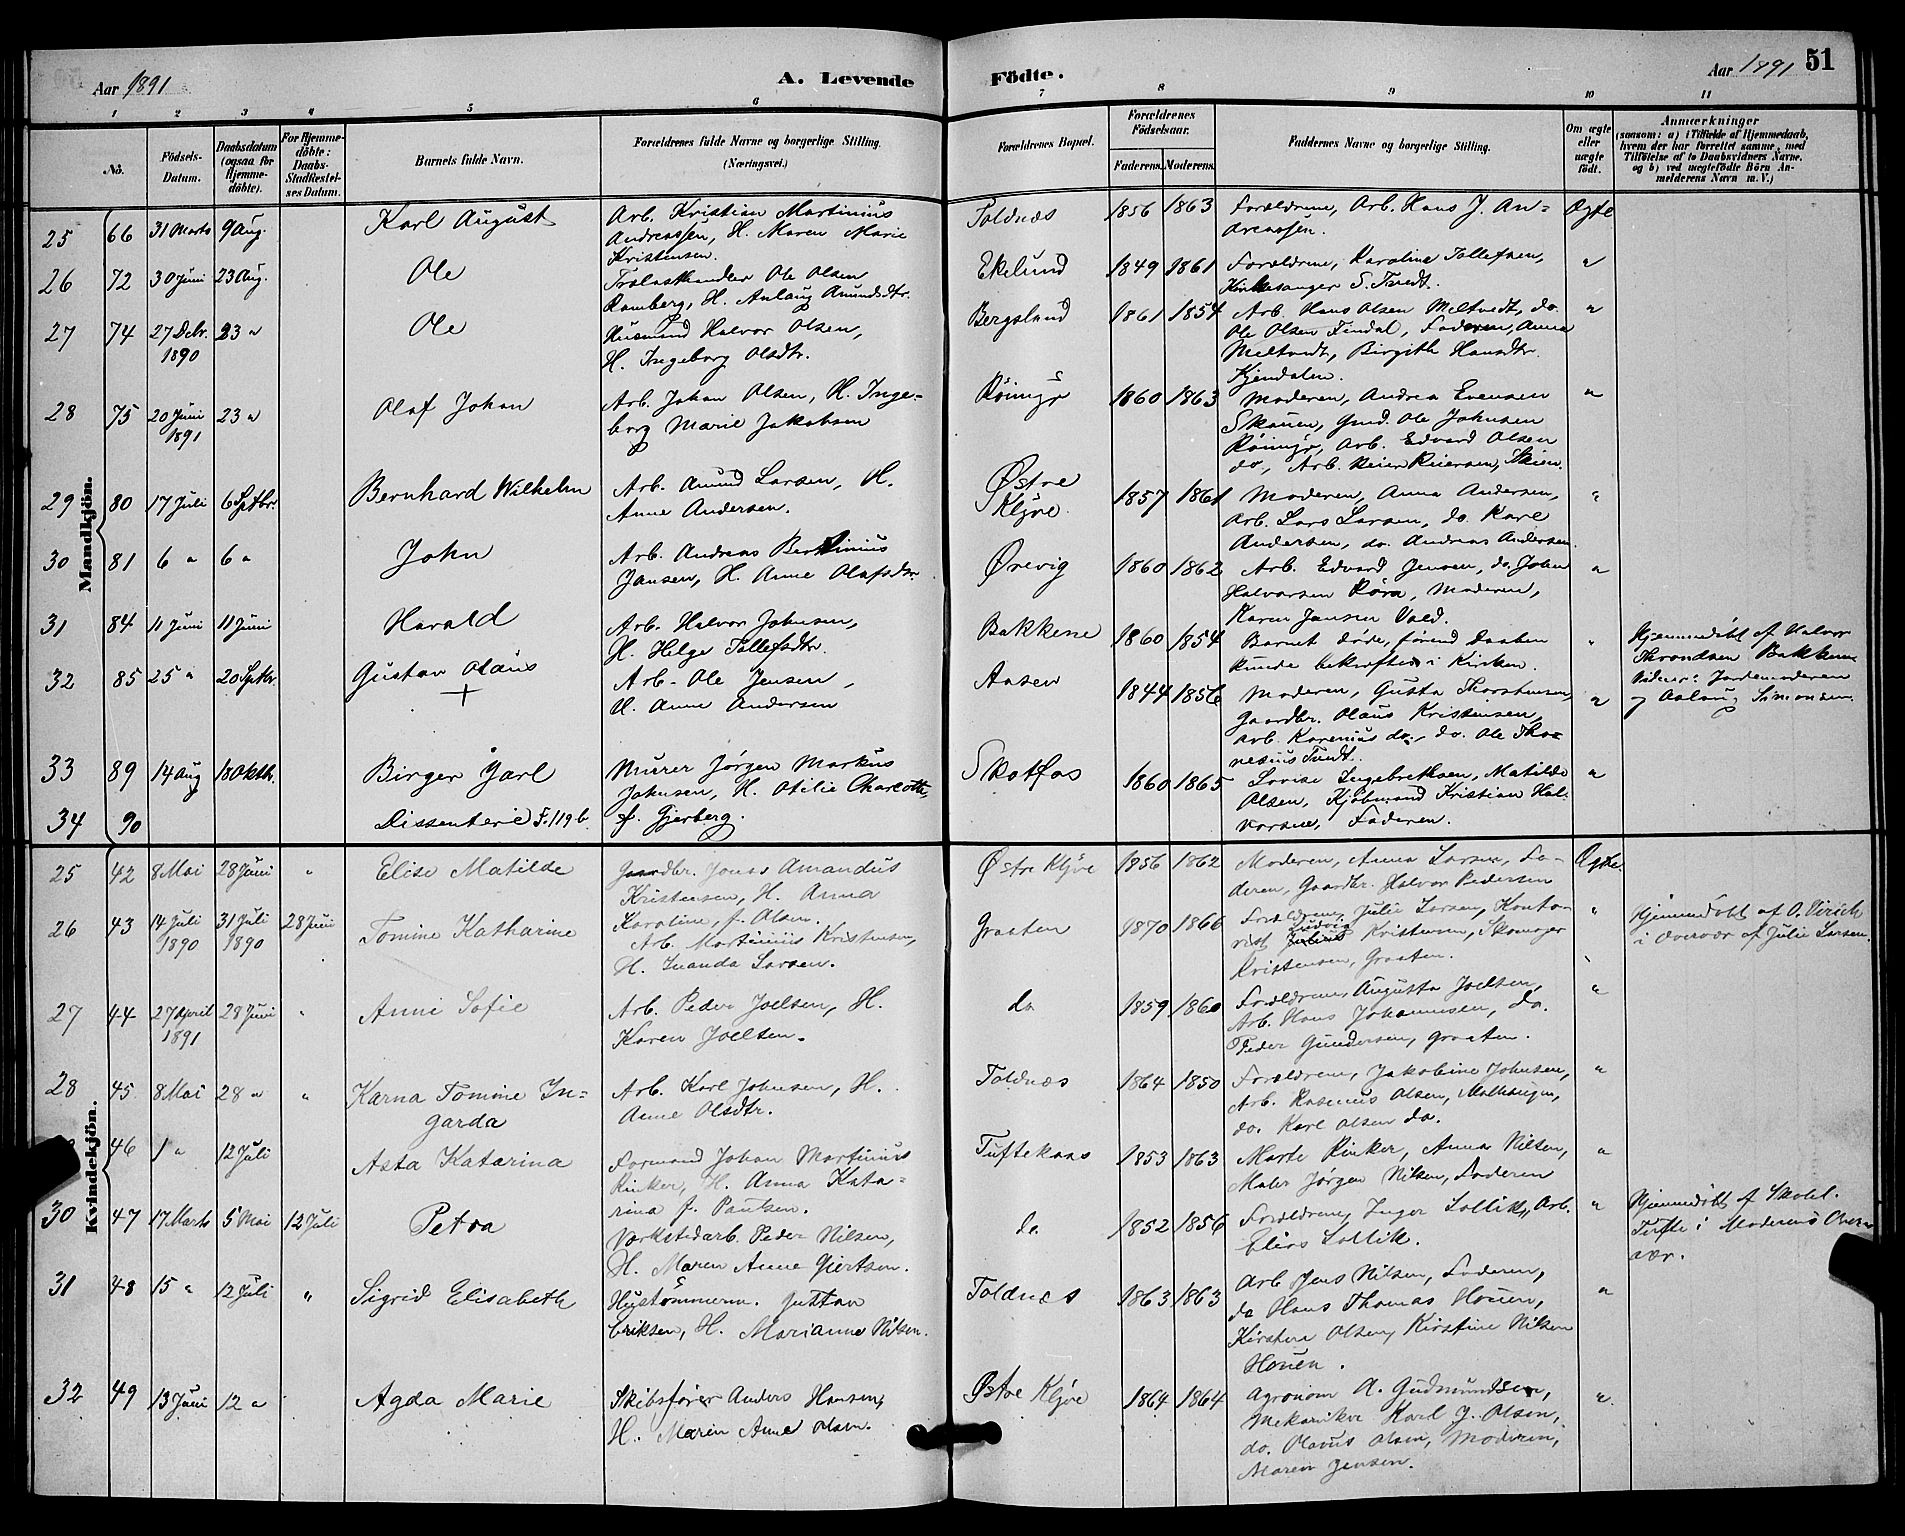 Aar 1891
A. Levende
Födte.
Aar 1891
51
1 2 3 4 5 6 7 8 9 10 11
No.
Födsels-
Datum.
Daabsdatum
(ogsaa for
Hjemme-
döbte).
For Hjemme-
döbte:
Daabs-
Stadfæstel-
ses Datum.
Barnets fulde Navn.
Forældrenes fulde Navne og borgerlige Stilling.
(Næringsvei.)
Forældrenes Bopæl.
Forældrenes
Födselsaar.
Faderens. Moderens.
Faddernes Navne og borgerlige Stilling.
Om ægte
eller
uægte
födt.
Anmærkninger
(saasom: a) i Tilfælde af Hjemmedaab,
hvem der har forrettet samme, med
Tilföielse af to Daabsvidners Navne,
og b) ved uægtefödte Börn An-
melderens Navn m. V.)
Mandkjön.
25 66 31 Marts 9 Aug. Karl August
Arb. Kristian Martinius
Andreassen, H. Maren Marie
Kristensen.
Toldnæs 1856 1863
Forældrene, Arb. Hans J. An-
dreassen.
Ægte
26 72 30 Juni 23 Aug. Ole
Trælasthandler Ole Olsen
Ramberg, H. Anlaug Amundsdtr.
Ekelund 1849 1861
Forældrene, Karoline Tollefsen,
Kirkesanger S. Tvedt.
"
27 74 27 Debr. 23 "
1890
Ole
Husmand Halvor Olsen,
H. Ingeborg Olsdtr.
Bergsland 1861 1854
Arb. Hans Olsen Meltvedt, do.
Ole Olsen Findal, Faderen, Anna
Meltvedt, Birgith Hansdtr.
Kjendalen.
"
28 75 20 Juni 23 "
1891
Olaf Johan
Arb. Johan Olsen, H. Inge-
borg Marie Jakobsen
Röimyr 1860 1863
Moderen, Andrea Evensen
Skauen, Gmd. Ole Johnsen
Röimyr, Arb. Edvard Olsen
do, Arb. Reier Reiersen, Skien.
"
29 80 17 Juli 6 Sptbr. Bernhard Wilhelm
Arb. Amund Larsen, H.
Anne Andersen.
Østre
Klyve. 1857 1861
Moderen, Anna Andersen,
Arb. Lars Larsen, do. Karl
Andersen, do. Andreas Andersen.
"
30 81 6 " 6 " John
Arb. Andreas Bertinius
Jansen, H. Anne Olafsdtr.
Ørevig 1860 1862
Arb. Edvard Jensen, do. John
Halvorsen Röra, Moderen,
Karen Jansen Vold.
"
31 84 11 Juni 11 Juni Harald
Arb. Halvor Johnsen,
H. Helge Tollefsdtr.
Bakkene 1860 1854
Barnet döde, förend Daaben
kunde bekræftes i Kirken.
"
Hjemmedöbt af Halvor
Throndsen Bakkene
Vidner: Jordemoderen
og Aslaug Simonsen.
32 85 25 " 20 Sptbr. Gustav Olaus
+
Arb. Ole Jensen,
H. Anne Andersen
Aasen 1844 1856
Moderen, Gusta Thorstensen,
Gaardbr. Olaus Kristensen,
Arb. Karenius do., do. Ole Tho-
nesius Tvedt.
"
33 89 14 Aug 18 Oktbr. Birger Jarl
Murer Jørgen Markus
Johnsen, H. Otilie Charlotte,
f. Gjerberg.
Skotfos 1860 1865
Lovise Ingebretsen, Matilde
Olsen, Kjöbmand Kristian Hal-
vorsen, Faderen.
"
34 90 Dissenterie F. 119 b.
Kvindekjön.
25 42 8 Mai 28 Juni " Elise Matilde
Gaardbr. Jonas Amandus
Kristensen, H. Anna
Karoline, f. Olsen.
Østre Klyve 1856 1862
Moderen, Anna Larsen, Fa-
deren, Gaardbr. Halvor Pedersen
Ægte.
26 43 14 Juli 31 Juli 28 Juni
1890 1890
Tomine Katharine
Arb. Martinius Kristensen,
H. Inanda Larsen.
Graaten 1870 1866
Forældrene, Julie Larsen, Konto-
rist Ludvig Kristensen, Skomager
Kristensen, Graaten.
"
Hjemmedöbt af O.
i Overvær af Julie Larsen.
27 44 27 April 28 Juni "
1891
Anne Sofie
Arb. Peder Joelsen, H.
Karen Joelsen.
do 1859 1860
Forældrene, Augusta Joelsen,
Arb. Hans Johannesen, do.
Peder Gundersen, Graaten.
"
28 45 8 Mai 28 " " Karna Tomine In-
garda
Arb. Karl Johnsen, H.
Anne Olsdtr.
Toldnæs 1864 1850
Forældrene, Jakobine Johnsen,
Arb. Rasmus Olsen, Melhaugen,
do. Karl Olsen do.
"
46 1 " 12 Juli Asta Katarina
Formand Johan Martinius
Rinker, H. Anna Kata-
rina f. Paulsen.
Tuftekaas 1853 1863
Marte Rinker, Anna Nilsen,
Maler Jørgen Nilsen, Faderen
"
30 47 17 Marts 5 Mai 12 Juli Petra
Verkstedarb. Peder Nilsen,
H. Maren Anne Gjertsen.
do 1852 1856
Forældrene, Inger Sollik, Arb.
Elias Sollik.
"
Hjemmedöbt af Skolel.
Tufte i Moderens Over-
vær.
31 48 15 " 12 Juli " Sigrid Elisabeth
Hustömmerm. Gustav
Eriksen, H. Marianne Nilsen.
Toldnæs 1863 1863
Arb Jens Nilsen, Faderen,
do Hans Thomas Houen,
Kirsten Olsen, Kirstine Nilsen
Houen.
"
32 49 13 Juni 12 " Agda Marie
Skibsfører Anders Hansen,
H. Maren Anne Olsen.
Østre Klyve 1864 1864
Agronom A. Gudmundsen,
Mekaniker Karl J. Olsen,
do. Olavus Olsen, Moderen,
Maren Jensen.
"